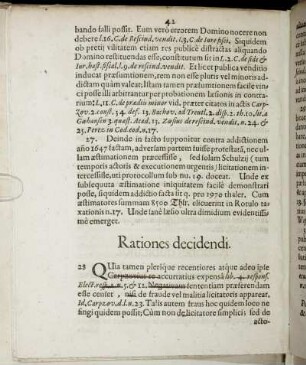 42
bando falli possit. Eum verò errorem Domino nocere non
debere l.16. C. de Rescind. vendit. c.3. C. de Jure fisci. Siquidem
ob pretij vilitatem etiam res publicè distractas aliquando
Domino restituendas esse, constitutum sit in l.2. C. de fide &
jur. hast. fiscal. l.9. de rescind. vendit. Et licet publica venditio
inducat præsumtionem, rem non esse pluris vel minoris addictam
quàm valeat, Itam tamen præsumtionem facilè vinci
posse illi arbitrantur per probationem læsionis in contrarium:
l.11. C. de prædiis minor vid. præter citatos in actis Carpzov.
2. const. 34. def. 13.
Cabansio 3. quæst. Zasius de rescind. vendit. n.24. &
25. Perez. in Cod. eod. n.17.
27. Deinde in facto supponitur contra addictionem
anno 1647 factam, adversam partem fuisse protestatã, nec ullam
æstimationem præcessisse, sed solam Schulzij (cum
tempore actoris & executionem urgentis) licitationem intercessisse,
uti protocollum sub nu. 19. docear. Unde ex
subsequuta æstimatione iniquitatem facilè demonstrari
posse, siquidem addictio facta sit q. pro 1970 thaler. Cum
æstimatores summam 8500 Thlr. elicuerint in Rotulo taxationis
n.17. Unde sanè læsio ultra dimidium evidentissimè
emerget.
Rationes decidendi.
28 QUia tamen plerique recentiores atque adeo ipse
Carpzovius ex accurratius expensâ lib. 4. respons.
Elect. n.5. & 12. sententiam præferendam
esse censet, nisi de fraude vel malitia licitatoris appareat,
Id, Carpzov. d.l. n.23. Talis autem fraus hoc quidem loco ne
fingi quidem possit; Cùm non de licitatore simplici sed de
acto-